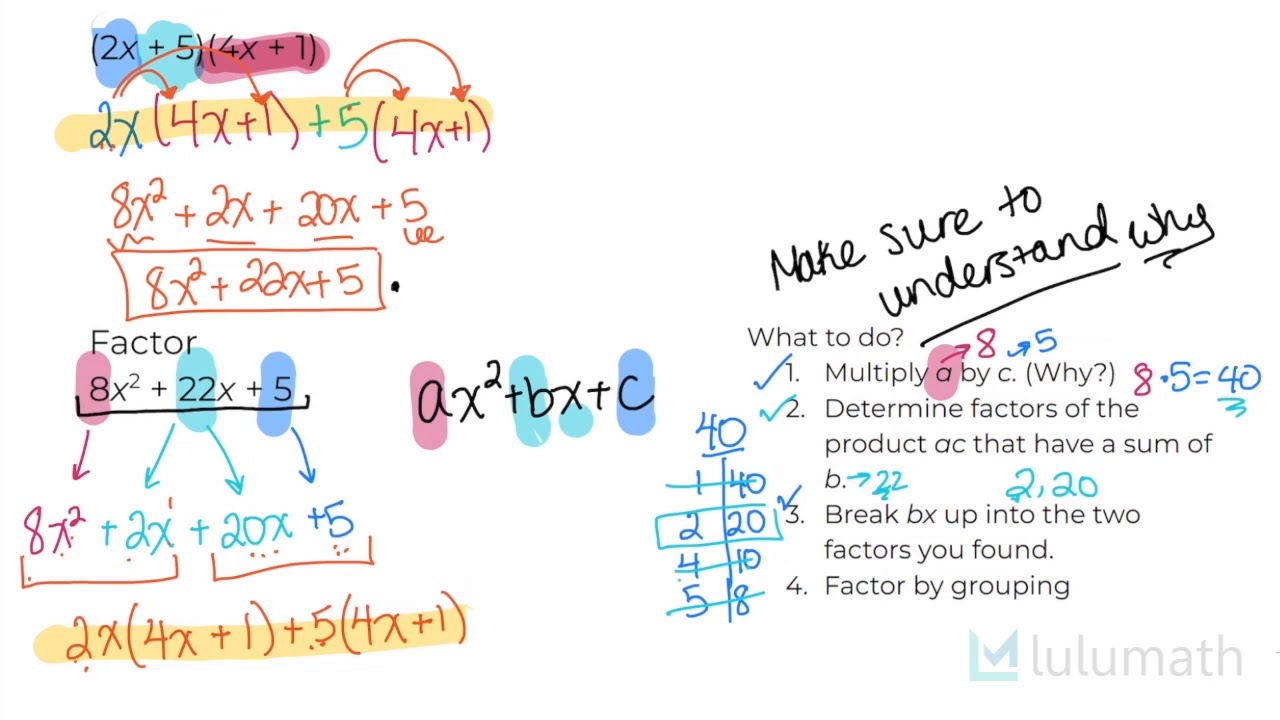 (2x + 5)(4x + 1)
2x(4x+1) +5(4x+1)
8x² + 2x + 20x + 5
8x² + 22x + 5
Factor
8x² + 22x + 5
8x² + 2x + 20x + 5
2x(4x + 1) + 5(4x+1)
ax² + bx + c
Make sure to
understand why
What to do?
→ 8 → 5
1. Multiply a by c. (Why?) 8 · 5 = 40
2. Determine factors of the
product ac that have a sum of
b. → 22 2, 20
3. Break bx up into the two
factors you found.
4. Factor by grouping
40
1 40
2 20
4 10
5 8
lulumath